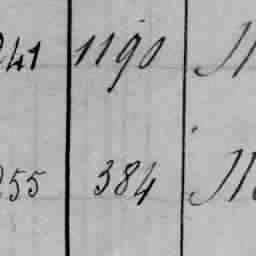 241 1190
255 384